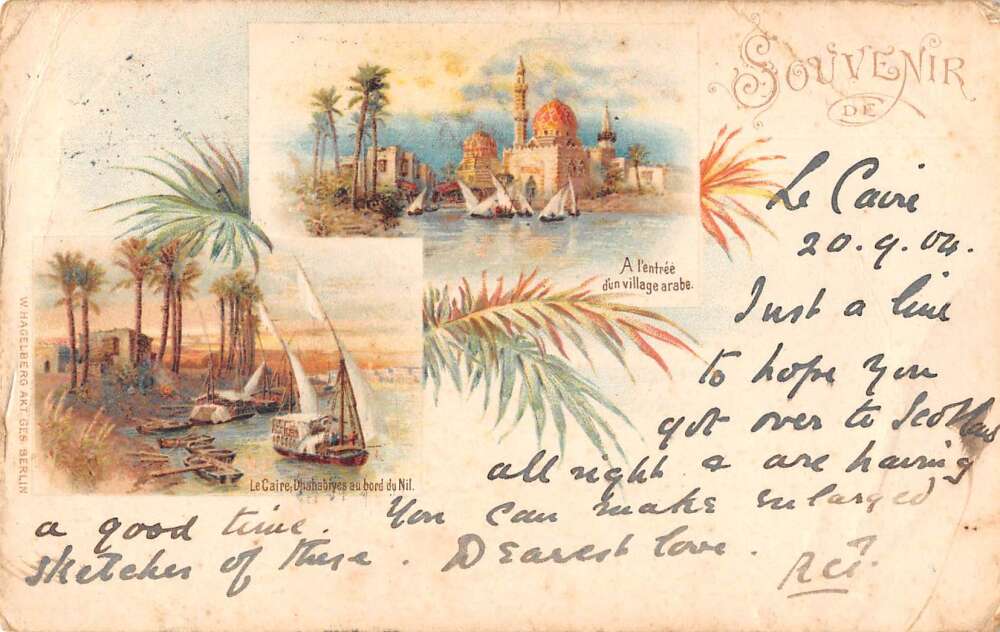 SOUVENIR
DE
A l'entrée
d'un village arabe.
Le Caire, Dhahabiyes au bord du Nil.
W. HAGELBERG AKT. GES. BERLIN
Le Caire
20.9.04.
Just a line
to hope you
got over to
all right & are having
a good time. You can make enlarged
sketches of these. Dearest love.